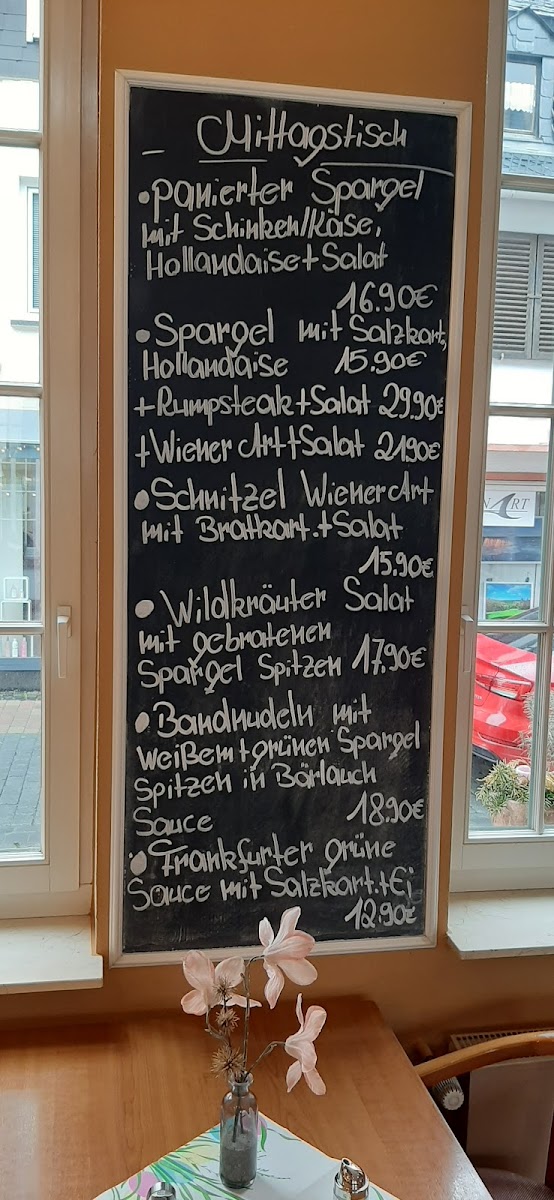 - Mittagstisch
• panierter Spargel
mit Schinken/Käse,
Hollandaise + Salat
16.90€
• Spargel mit Salzkart,
Hollandaise 15.90€
+ Rumpsteak + Salat 29.90€
+ Wiener Art + Salat 21.90€
• Schnitzel Wiener Art
mit Bratkart. + Salat
15.90€
• Wildkräuter Salat
mit gebratenen
Spargel Spitzen 17.90€
• Bandnudeln mit
weißem + grünen Spargel
Spitzen in Bärlauch
Sauce 18.90€
• Frankfurter grüne
Sauce mit Salzkart. + Ei
12.90€
ART